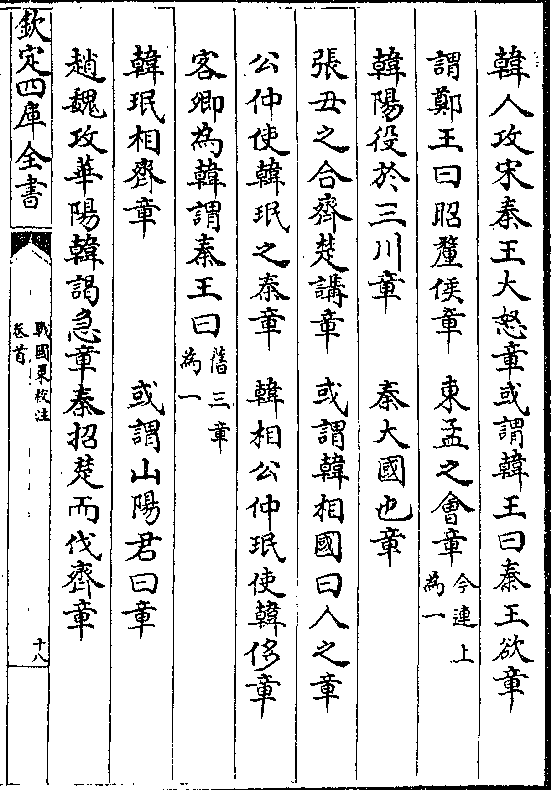 韓人攻宋秦王大怒章或謂韓王曰秦王欲章
謂鄭王曰昭釐侯章　東孟之會章今連上為一
韓陽役於三川章　秦大國也章
張丑之合齊楚講章　或謂韓相國曰人之章
公仲使韓珉之秦章　韓相公仲珉使韓侈章
客卿為韓謂秦王曰舊三章為一
韓珉相齊章　或謂山陽君曰章
趙魏攻華陽韓謁急章秦招楚而伐齊章
欽定四庫全書
戰國策校注
卷首
十八